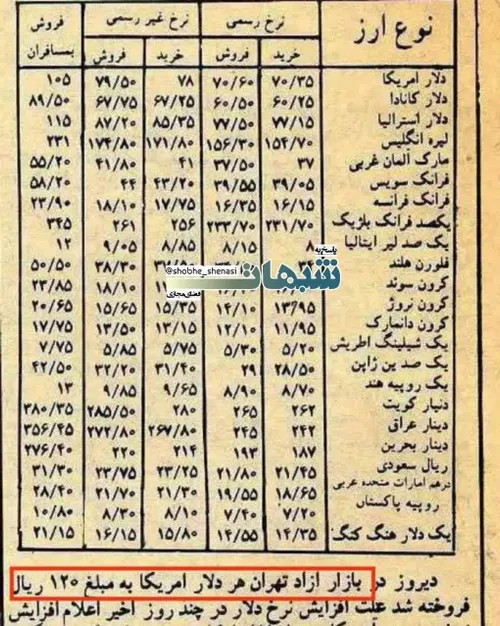 نوع ارز نرخ رسمی نرخ غیر رسمی فروش بمسافران
خرید فروش خرید فروش
دلار امریکا ۷۰/۳۵ ۷۰/۶۰ ۷۸ ۷۹/۵۰ ۱۰۵
دلار کانادا ۶۰/۲۵ ۶۰/۵۰ ۶۷/۲۵ ۶۷/۷۵ ۸۹/۵۰
دلار استرالیا ۷۷/۱۵ ۷۷/۵۰ ۸۵/۳۵ ۸۷/۲۰ ۱۱۵
لیره انگلیس ۱۵۴/۷۰ ۱۵۶/۳۰ ۱۷۱/۸۰ ۱۷۴/۸۰ ۲۳۱
مارک آلمان غربی ۳۷ ۳۷/۵۰ ۴۱ ۴۱/۸۰ ۵۵/۲۰
فرانک سویس ۳۹/۰۵ ۳۹/۵۵ ۴۳/۲۰ ۴۴ ۵۸/۲۰
فرانک فرانسه ۱۶/۱۵ ۱۶/۳۵ ۱۷/۷۵ ۱۸/۱۰ ۲۳/۹۰
یکصد فرانک بلژیک ۲۳۱/۷۰ ۲۳۳/۷۰ ۲۵۶ ۲۶۱ ۳۴۵
یک صد لیر ایتالیا ۸ ۸/۱۵ ۸/۸۵ ۹/۰۵ ۱۲
فلورن هلند ۳۸/۳۰ ۵۰/۵۰
کرون سوئد ۱۸/۱۰ ۲۳/۸۵
کرون نروژ ۱۳/۹۵ ۱۴/۱۰ ۱۵/۳۵ ۱۵/۶۵ ۲۰/۶۵
کرون دانمارک ۱۱/۹۵ ۱۲/۱۰ ۱۳/۱۵ ۱۳/۵۰ ۱۷/۷۵
یک شیلینگ اطریش ۵/۲۰ ۵/۳۰ ۵/۷۵ ۵/۸۵ ۷/۷۵
یک صد ین ژاپن ۲۸/۵۰ ۲۹ ۳۱/۴۰ ۳۲/۲۰ ۴۲/۵۰
یک روپیه هند ۸/۷۰ ۸/۹۰ ۹/۶۵ ۹/۸۵ ۱۳
دنیار کویت ۲۶۲ ۲۶۵ ۲۸۰ ۲۸۵/۵۰ ۳۸۰/۳۵
دینار عراق ۲۴۲ ۲۴۵ ۲۶۷/۸۰ ۲۷۲/۸۰ ۳۵۶/۴۵
دینار بحرین ۱۸۷ ۱۹۳ ۲۱۴ ۲۲۰ ۲۷۶/۴۰
ریال سعودی ۲۱/۴۵ ۲۱/۸۰ ۲۳/۲۵ ۲۳/۷۵ ۳۱/۳۰
درهم امارات متحده عربی ۱۸/۶۵ ۱۹/۵۵ ۲۱/۳۰ ۲۱/۷۰ ۲۸/۴۰
روپیه پاکستان ۷/۲۰ ۷/۴۰ ۸/۱۰ ۸/۳۰ ۱۰/۸۰
یک دلار هنگ کنگ ۱۴/۳۵ ۱۴/۵۵ ۱۵/۸۰ ۱۶/۱۵ ۲۱/۱۵
پاسخ به
شبهات
فضای مجازی
@shobhe_shenasi
دیروز در بازار ازاد تهران هر دلار امریکا به مبلغ ۱۲۰ ریال
فروخته شد علت افزایش نرخ دلار در چند روز اخیر اعلام افزایش